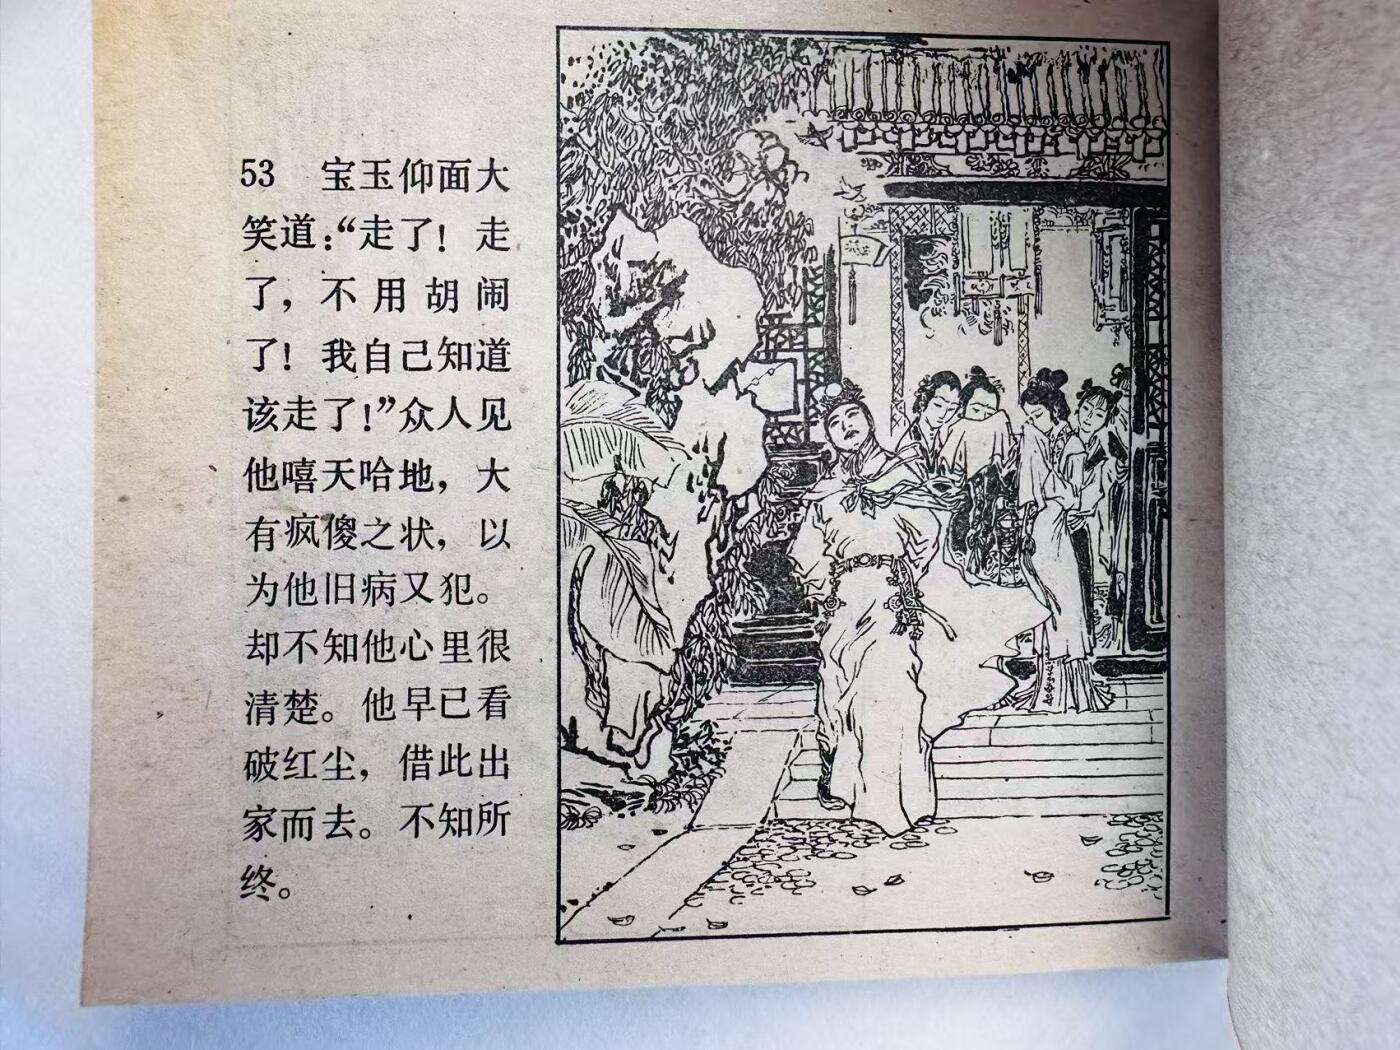 53 宝玉仰面大
笑道：“走了！走
了，不用胡闹
了！我自己知道
该走了！”众人见
他嘻天哈地，大
有疯傻之状，以
为他旧病又犯。
却不知他心里很
清楚。他早已看
破红尘，借此出
家而去。不知所
终。